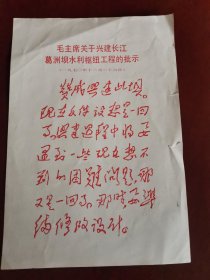 毛主席关于兴建长江
葛洲坝水利枢纽工程的批示
（一九七〇年十二月二十六日）
赞成兴建此坝。
现在文件设想是一回
事。兴建过程中将要
遇到一些现在想不
到的困难问题，那
又是一回事。那时，要准
备修改设计。